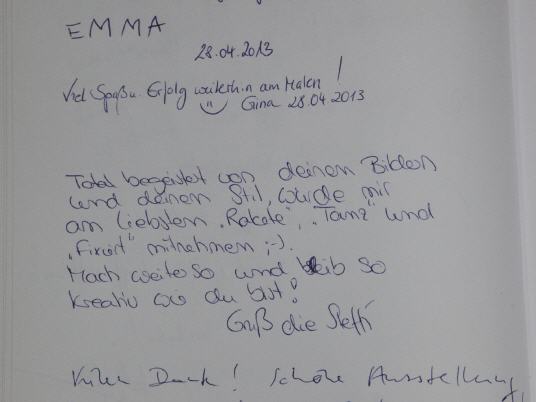 EMMA
28.04.2013
Viel Spaß u. Erfolg weiterhin am Malen!
Gina 28.04.2013
Total begeistert von deinen Bildern
und deinem Stil, würde mir
am liebsten „Rakete", „Tanz" und
„Fixiert" mitnehmen ;-).
Mach weiter so und bleib so
kreativ wie du bist!
Gruß die Steffi
Vielen Dank! Schöne Ausstellung,